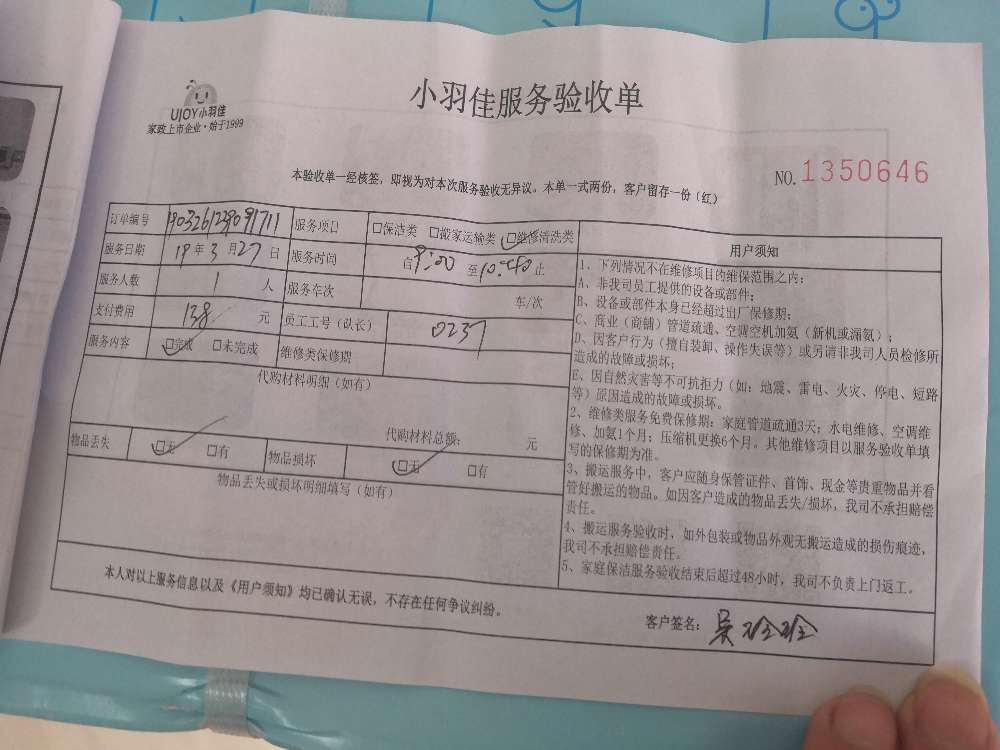 UJOY小羽佳
家政上市企业·始于1999
小羽佳服务验收单
本验收单一经核签，即视为对本次服务验收无异议。本单一式两份，客户留存一份（红）
NO. 1350646
订单编号 1903261239091711 服务项目 □保洁类 □搬家运输类 □维修清洗类
服务日期 19 年 3 月 27 日 服务时间 自 9:00 至 10:40 止
服务人数 1 人 服务车次 车/次
支付费用 138 元 员工工号（队长） 0237
服务内容 □完成 □未完成 维修类保修期
代购材料明细（如有）
代购材料总额： 元
物品丢失 □无 □有 物品损坏 □无 □有
物品丢失或损坏明细填写（如有）
用户须知
1、下列情况不在维修项目的维保范围之内：
A、非我司员工提供的设备或部件；
B、设备或部件本身已经超过出厂保修期；
C、商业（商铺）管道疏通、空调空机加氨（新机或漏氨）；
D、因客户行为（擅自装卸、操作失误等）或另请非我司人员检修所
造成的故障或损坏；
E、因自然灾害等不可抗拒力（如：地震、雷电、火灾、停电、短路
等）原因造成的故障或损坏。
2、维修类服务免费保修期：家庭管道疏通3天；水电维修、空调维
修、加氨1个月；压缩机更换6个月。其他维修项目以服务验收单填
写的保修期为准。
3、搬运服务中，客户应随身保管证件、首饰、现金等贵重物品并看
管好搬运的物品。如因客户造成的物品丢失/损坏，我司不承担赔偿
责任。
4、搬运服务验收时，如外包装或物品外观无搬运造成的损伤痕迹，
我司不承担赔偿责任。
5、家庭保洁服务验收结束后超过48小时，我司不负责上门返工。
本人对以上服务信息以及《用户须知》均已确认无误，不存在任何争议纠纷。
客户签名： 吴玲玲